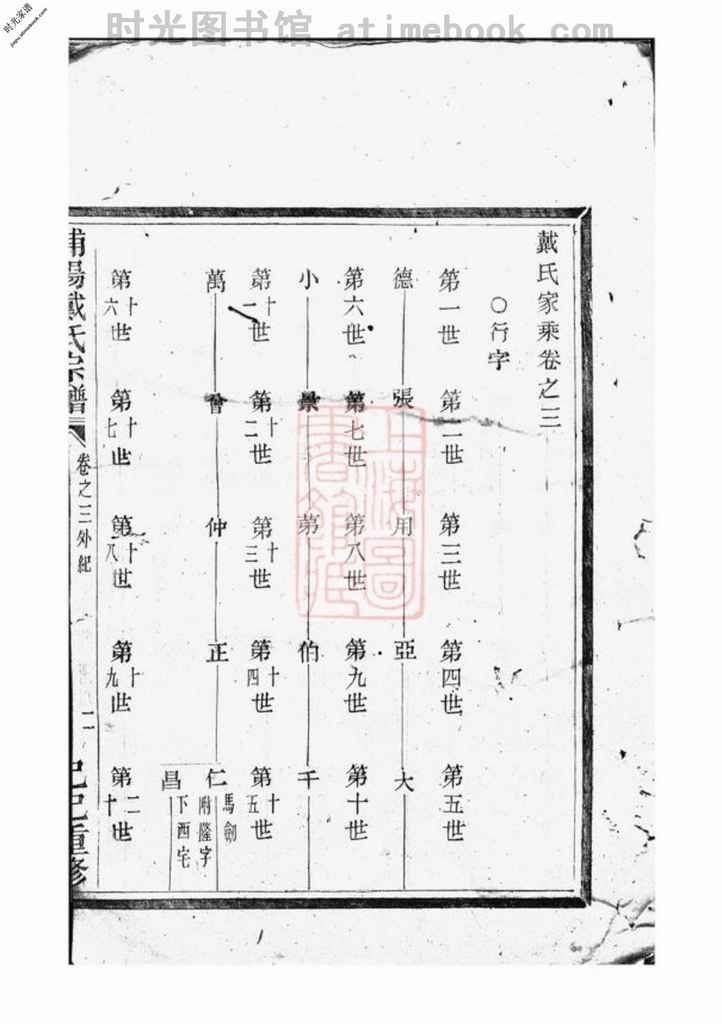 时光图书馆 atimebook.com
时光家谱
jiapu.atimebook.com
戴氏家乘卷之三
○行字
第一世 第二世 第三世 第四世 第五世
德 張 用 亞 大
第六世 第七世 第八世 第九世 第十世
小 景 第 伯 千
第十一世 第十二世 第十三世 第十四世 第十五世
萬 曾 仲 正 仁 馬劍 附隆字
昌 下西宅
第十六世 第十七世 第十八世 第十九世 第二十世
浦陽戴氏宗譜 卷之三外紀 二 己巳重修
上海圖書館藏